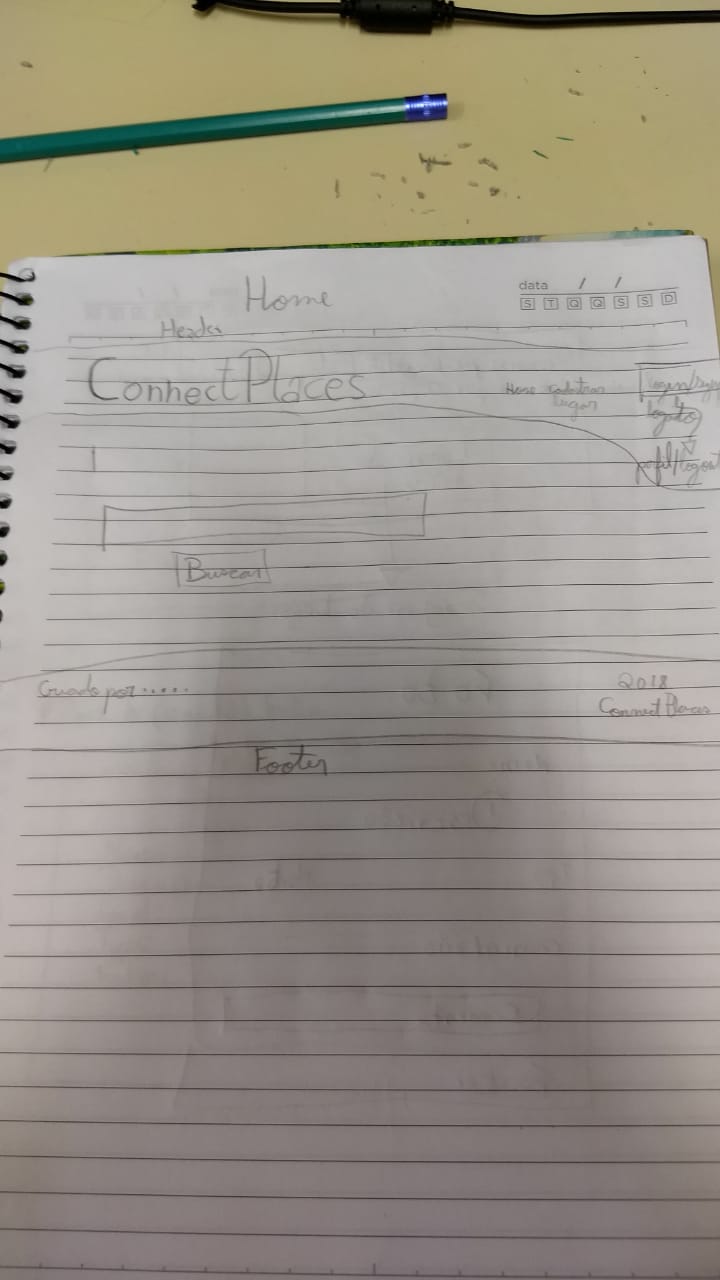 Home
data / /
S T Q Q S S D
Header
ConnectPlaces
Home cadastrar lugar
login/sign
logado
perfil/logout
Buscar
Criado por.....
2018
ConnectPlaces
Footer